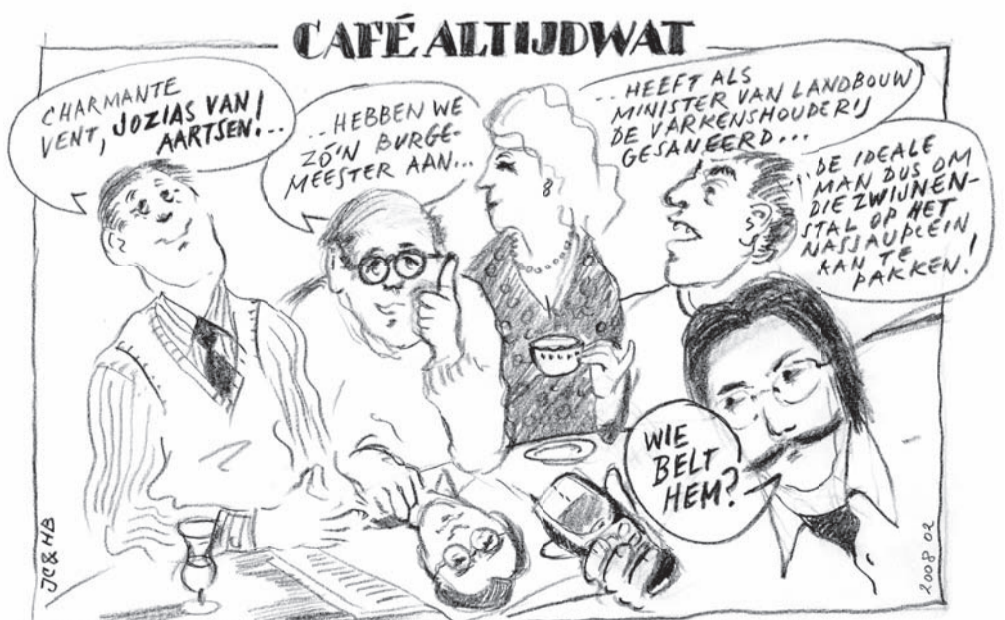 CAFÉ ALTIJDWAT
CHARMANTE
VENT, JOZIAS VAN
AARTSEN!...
...HEBBEN WE
ZÓ'N BURGE-
MEESTER AAN...
...HEEFT ALS
MINISTER VAN LANDBOUW
DE VARKENSHOUDERIJ
GESANEERD...
DE IDEALE
MAN DUS OM
DIE ZWIJNEN-
STAL OP HET
NASSAUPLEIN
AAN TE
PAKKEN!
WIE
BELT
HEM?
JC & HB
2008 02